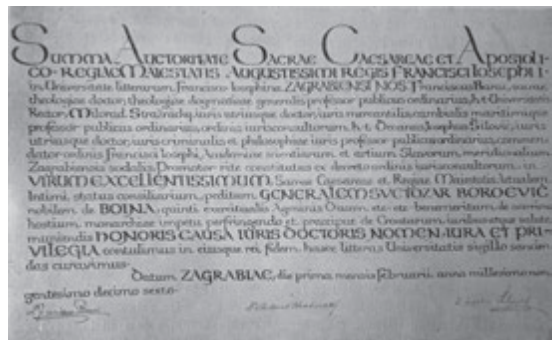 SUMMA AUCTORITATE SACRAE CAESAREAE ET APOSTOLI-
CO-REGIAE MAIESTATIS AUGUSTISSIMI REGIS FRANCISCI IOSEPHI I.
in Universitate litterarum Francisco Iosephina ZAGRABIENSI NOS Franciscus sacrae
theologiae doctor, theologiae dogmaticae generalis professor publicus ordinarius, h. t. Universitatis
Rector, Milorad Stražnicky, iuris utriusque doctor, iuris mercantilis cambialis maritimique
professor publicus ordinarius, ordinis iurisconsultorum h. t. Decanus, Josephus Šilović, iuris
utriusque doctor, iuris criminalis et philosophiae iuris professor publicus ordinarius, commen-
dator ordinis Francisci Iosephi, Academiae scientiarum et artium Slavorum meridionalium
Zagrabiensis sodalis, Promotor rite constitutus ex decreto ordinis iurisconsultorum in
VIRUM EXCELLENTISSIMUM, Sacrae Caesareae et Regiae Maiestatis
Intimi status consiliarium, peditum GENERALEM SVETOZAR BOROEVIĆ
nobilem de BOJNA, quinti exercitus Agmini Ducem, etc. etc. benemeritum de
hostium monarchiae impetu perfringendo et praecipue de Croatarum salute
munienda HONORIS CAUSA IURIS DOCTORIS NOMEN, IURA ET PRI-
VILEGIA contulimus in eiusque rei fidem hasce litteras Universitatis sigillo sancien-
das curavimus.
Datum ZAGRABIAE, die prima mensis Februarii anno millesimo non-
gentesimo decimo sexto.